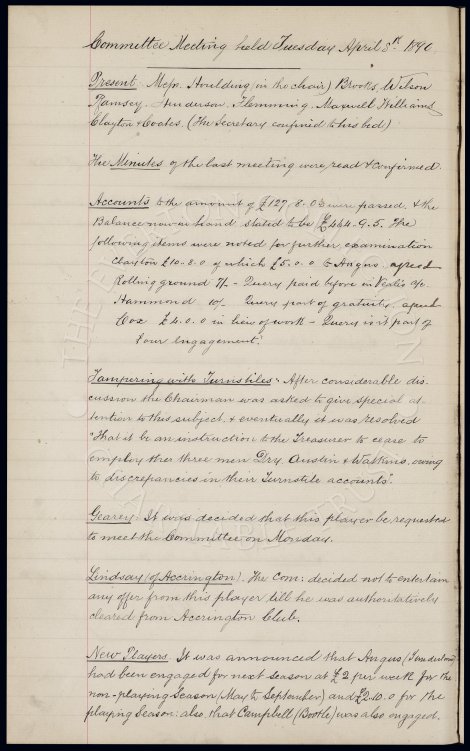 Committee Meeting held Tuesday April 8th 1890
Present Messrs Houlding (in the chair) Brooks, Wilson
Ramsey, Anderson, Flemming, Maxwell, Williams
Clayton & Coates. (The Secretary confined to his bed)
The Minutes of the last meeting were read & confirmed.
Accounts to the amount of £127.8.0½ were passed, & the
Balance now in hand stated to be £464.9.5. The
following items were noted for further examination
Clayton £10.8.0 of which £5.0.0 to Angus. agreed
Rolling ground 7/- Query paid before in a/c.
Hammond 10/- Query part of gratuity. agreed
Cox £4.0.0 in lieu of work - Query isn't part of
Your engagement.
Tampering with Turnstiles: After considerable dis-
cussion the Chairman was asked to give special at-
tention to this subject. & eventually it was resolved
"That it be an instruction to the Treasurer to cease to
employ ther three men Dry, Austin & Watkins, owing
to discrepancies in their Turnstile accounts".
Gearey: It was decided that this player be requested
to meet the Committee on Monday.
Lindsay (of Accrington). The Com: decided not to entertain
any offer from this player till he was authoritatively
cleared from Accrington Club.
New Players. It was announced that Angus (Sunderland)
had been engaged for next season at £2 per week for the
non-playing Season (May to September) and £2.10.0 for the
playing Season: also, that Campbell (Bootle) was also engaged.
THE EVERTON
COLLECTION
CHARITABLE TRUST